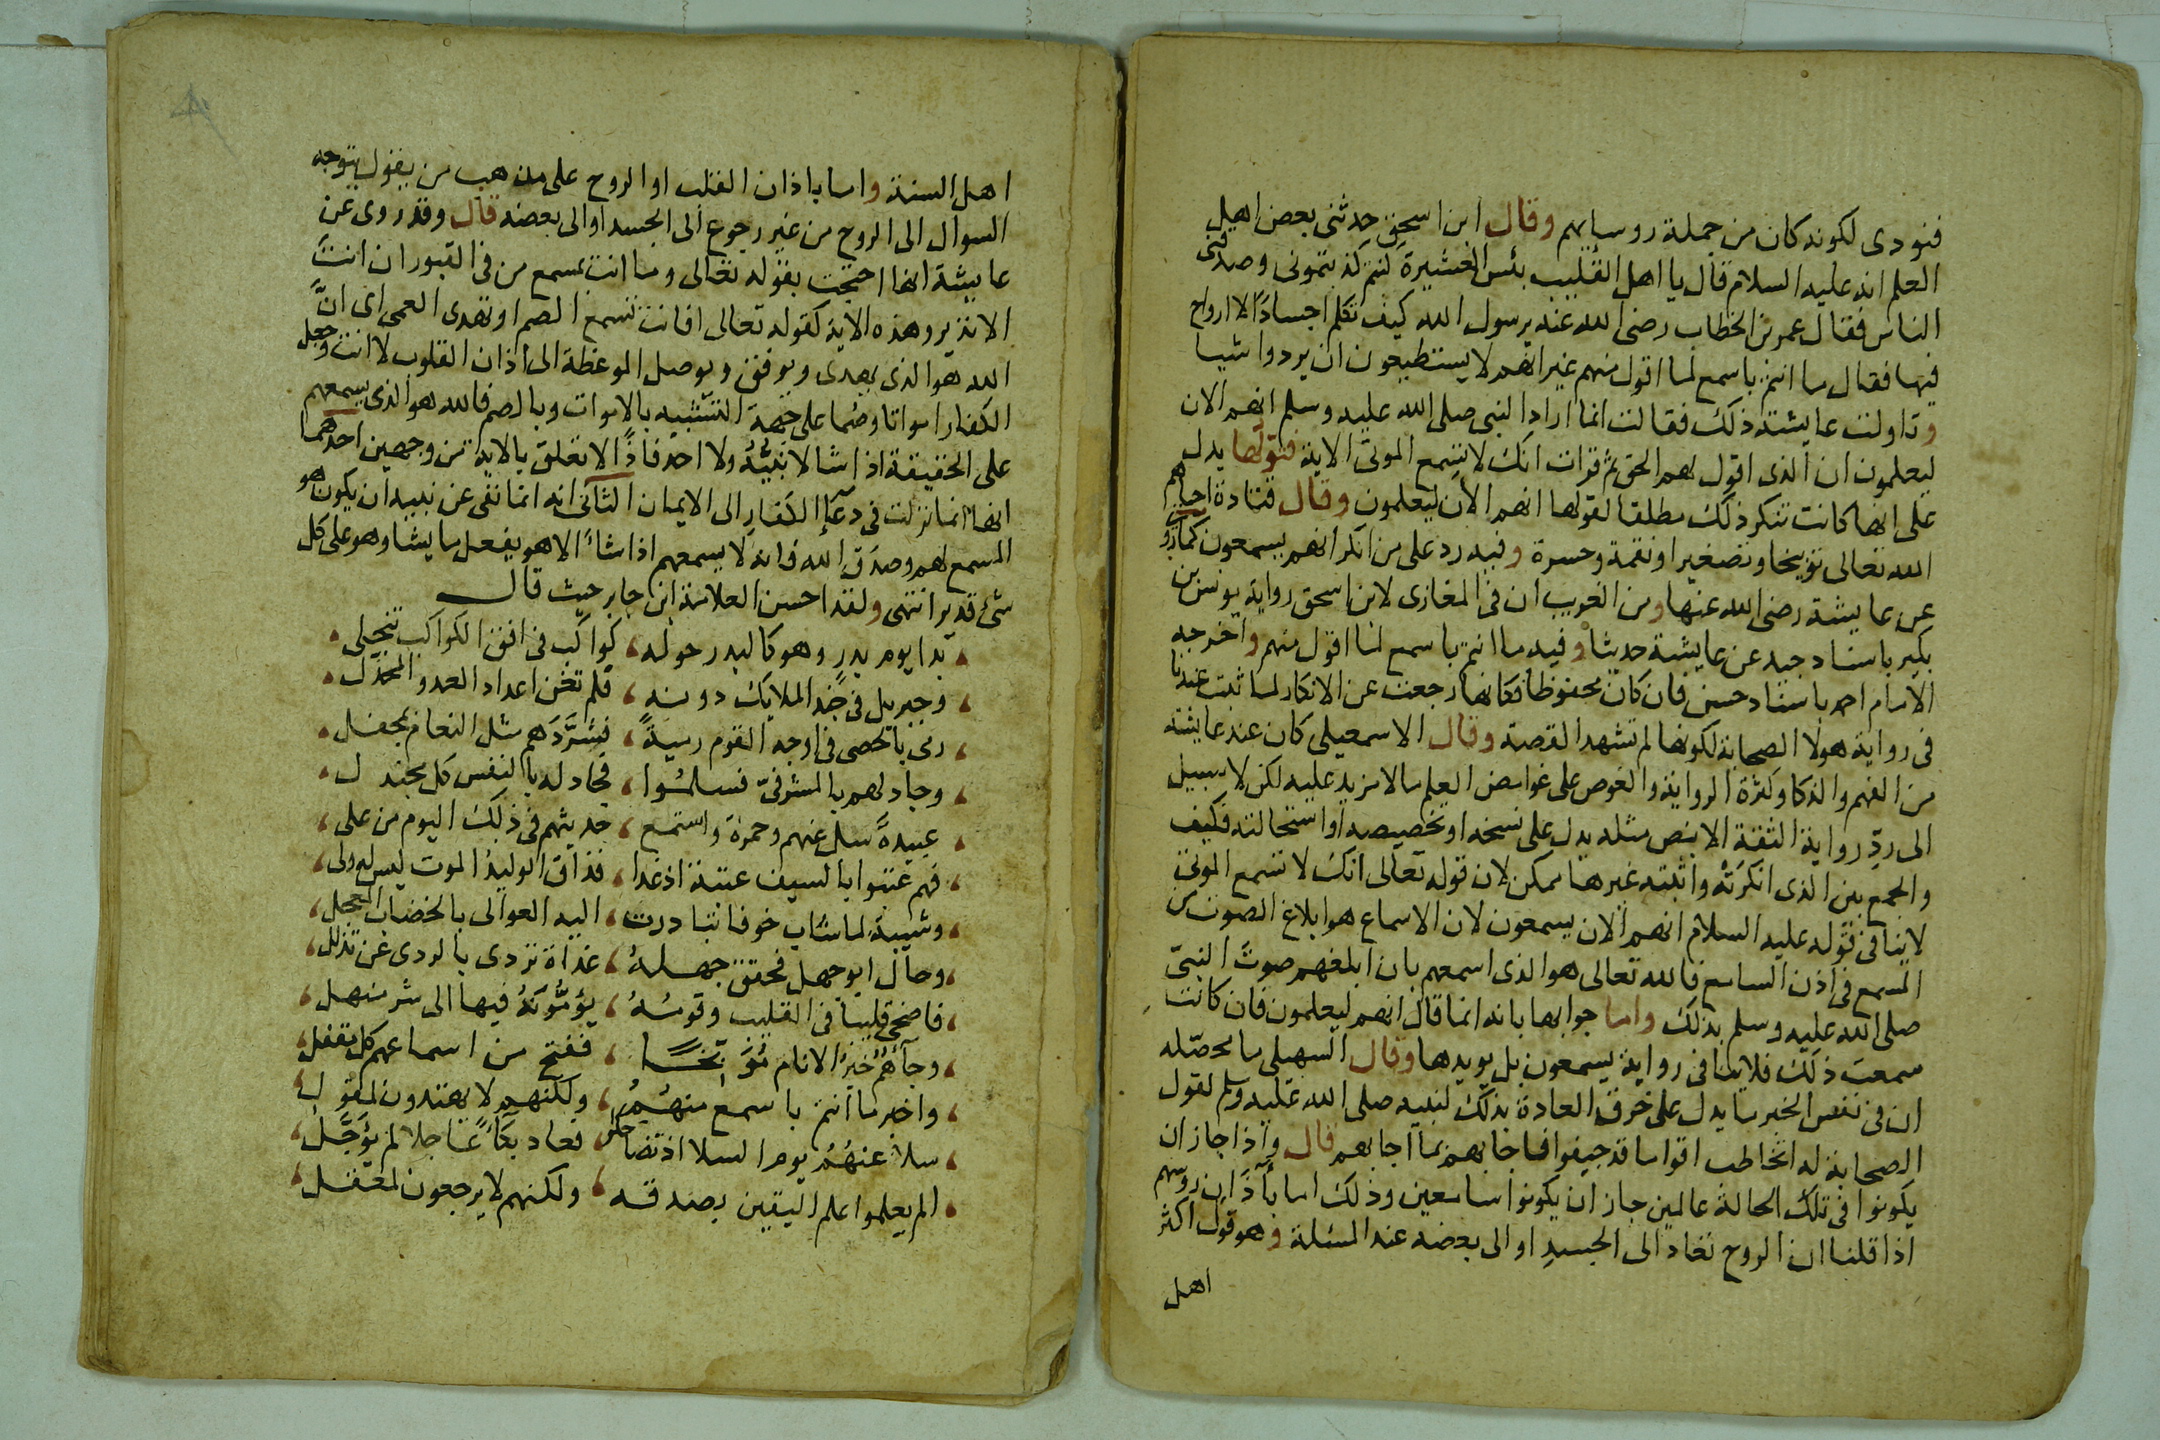 فنودى لكونه كان من جملة روسايهم وقال ابن اسحق حدثنى بعض اهل
العلم انه عليه السلام قال يا اهل القليب بئس العشيرة كنتم كذبتمونى وصدقنى
الناس فقال عمر بن الخطاب رضى الله عنه يرسول الله كيف تكلم اجسادًا لا ارواح
فيها فقال ما انتم باسمع لما اقول منهم غير انهم لا يستطيعون ان يردوا شيا
وتاولت عايشة ذلك فقالت انما اراد النبى صلى الله عليه وسلم انهم الان
ليعلمون ان الذى اقول لهم الحق ثم قرات انك لا تسمع الموتى الاية فقولها يدل
على انها كانت تنكر ذلك مطلقا لقولها انهم الان ليعلمون وقال قتادة احياهم
الله تعالى توبيخا وتصغيرا ونقمة وحسرة وفيه رد على من انكر انهم يسمعون كما روى
عن عايشة رضى الله عنها ومن الغريب ان فى المغازى لابن اسحق رواية يونس بن
بكير باسناد جيد عن عايشة حديثا وفيه ما انتم باسمع لما اقول منهم واخرجه
الامام احمد باسناد حسن فان كان محفوظا فكانها رجعت عن الانكار لما ثبت عندها
فى رواية هولا الصحابة لكونها لم تشهد القصة وقال الاسمعيلى كان عند عايشة
من الفهم والذكا وكثرة الرواية والغوص على غوامض العلم مالا مزيد عليه لكن لا سبيل
الى ردّ رواية الثقة الا بنص مثله يدل على نسخه او تخصيصه او استحالته فكيف
والجمع بين الذى انكرته واثبته غيرها ممكن لان قوله تعالى انك لا تسمع الموتى
لا ينافى قوله عليه السلام انهم الان يسمعون لان الاسماع هو ابلاغ الصوت من
المسمع فى اذن السامع فالله تعالى هو الذى اسمعهم بان ابلغهم صوت النبىّ
صلى الله عليه وسلم بذلك واما جوابها بانه انما قال انهم ليعلمون فان كانت
سمعت ذلك فلا ينافى رواية يسمعون بل يويدها وقال السهيلى ما محصّله
ان فى نفس الخبر ما يدل على خرق العادة بذلك لنبيه صلى الله عليه وسلم لقول
الصحابة له اتخاطب اقواما قد جيفوا فاجابهم بما اجابهم قال واذا جاز ان
يكونوا فى تلك الحالة عالمين جاز ان يكونوا سامعين وذلك اما بآذان روسهم
اذا قلنا ان الروح تعاد الى الجسد او الى بعضه عند المسئلة وهو قول اكثر
اهل
اهل السنة واما باذان القلب او الروح على مذهب من يقول يتوجه
السوال الى الروح من غير رجوع الى الجسد او الى بعضه قال وقد روى عن
عايشة انها احتجت بقوله تعالى وما انت بمسمع من فى القبور ان انت
الا نذير وهذه الاية كقوله تعالى افانت تسمع الصم او تهدى العمى اى انّ
الله هو الذى يهدى ويوفق ويوصل الموعظة الى اذان القلوب لا انت وجعل
الكفار امواتا وصُما على جهة التشبيه بالاموات وبالصم فالله هو الذى يسمعهم
على الحقيقة اذا شا لا نبيّهُ ولا احد فاذًا لا تعلق بالاية من وجهين احدهما
انها انما نزلت فى دعآ الكفار الى الايمان الثانى انه انما نفى عن نبيه ان يكون هو
المسمع لهم وصدق الله فانه لا يسمعهم اذا شاء الا هو يفعل ما يشا وهو على كل
شئ قدير انتهى ولقد احسن العلامة ابن جابر حيث قال
بدا يوم بدر وهو كالبدر حوله، كواكب فى افق الكواكب تنجلى
وجبريل فى جند الملايك دونه، فلم تغن اعداد العدو المخذّل
رمى بالحصى فى اوجه القوم رمية، فشرّدهم مثل النعام بمجفل
وجاد لهم بالمشرفىّ فسلموا، فجاد له بالنفس كل مجندل
عبيدة سل عنهم وحمزة واستمع، حديثهم فى ذلك اليوم من على
فهم عتبوا بالسيف عتبة اذ غدا، فذاق الوليد الموت ليس له ولى
وشيبة لما شاب خوفا تبادرت، اليه العوالى بالخضاب المعجل
وجال ابو جهل فحقق جهلهُ، غداة تردى بالردى عن تذلل
فاضحى قليبا فى القليب وقومهُ، يؤمّونهُ فيها الى شر منهل
وجآءهم خير الانام موبخًا، ففتح من اسماعهم كل مقفل
واخبر ما انتم باسمع منهُمُ، ولكنهم لا يهتدون لمقول
سلا عنهُمُ يوم السلا اذ تضاحكوا، فعاد بكآءً عاجلا لم يؤجّل
الم يعلموا علم اليقين بصدقه، ولكنهم لا يرجعون لمعقل